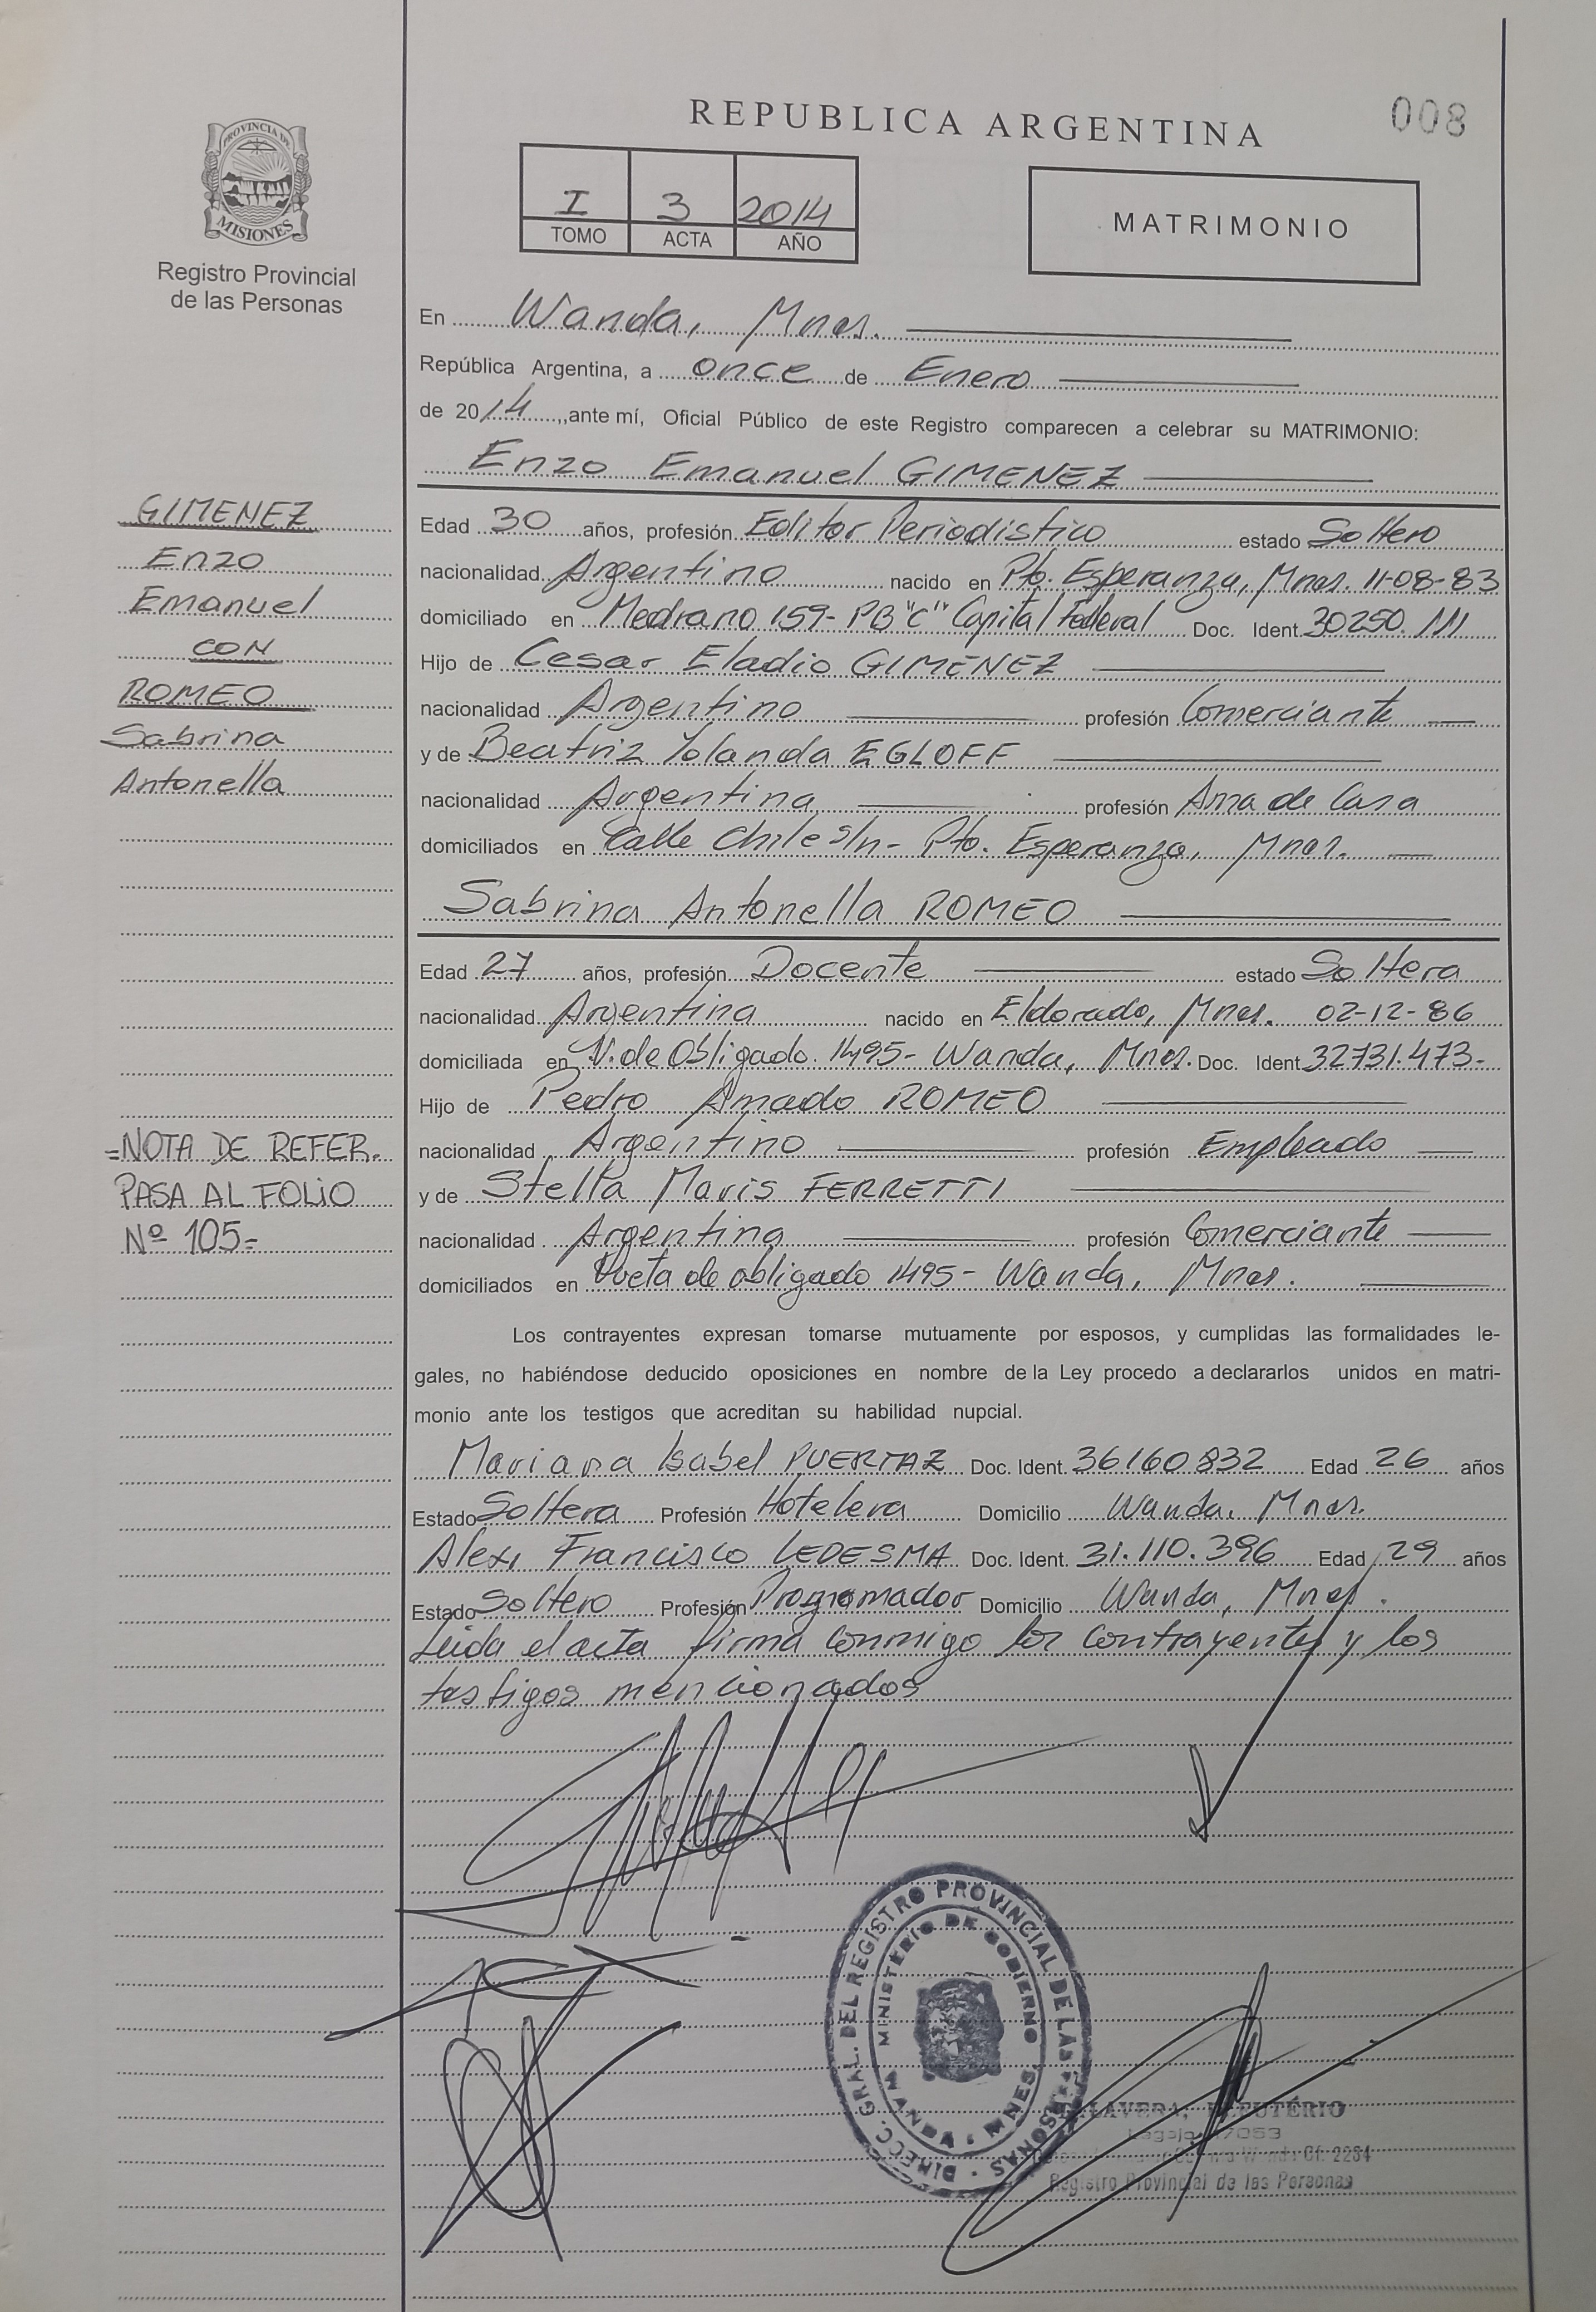 REPUBLICA ARGENTINA
008
PROVINCIA DE
MISIONES
Registro Provincial
de las Personas
I 3 2014
TOMO ACTA AÑO
MATRIMONIO
En Wanda, Mnes.
República Argentina, a once de Enero
de 2014, ante mí, Oficial Público de este Registro comparecen a celebrar su MATRIMONIO:
Enzo Emanuel GIMENEZ
GIMENEZ
Enzo
Emanuel
CON
ROMEO
Sabrina
Antonella
Edad 30 años, profesión Editor Periodistico estado Soltero
nacionalidad Argentino nacido en Pto. Esperanza, Mnes. 11-08-83
domiciliado en Medrano 159- PB "C" Capital Federal Doc. Ident. 30250.111
Hijo de Cesar Eladio GIMENEZ
nacionalidad Argentino profesión Comerciante
y de Beatriz Yolanda EGLOFF
nacionalidad Argentina profesión Ama de Casa
domiciliados en Calle Chile s/n- Pto. Esperanza, Mnes.
Sabrina Antonella ROMEO
Edad 27 años, profesión Docente estado Soltera
nacionalidad Argentina nacido en Eldorado, Mnes. 02-12-86
domiciliada en V. de Obligado 1495- Wanda, Mnes. Doc. Ident. 32731.473-
Hijo de Pedro Amado ROMEO
nacionalidad Argentino profesión Empleado
y de Stella Maris FERRETTI
nacionalidad Argentina profesión Comerciante
domiciliados en Vueta de obligado 1495- Wanda, Mnes.
=NOTA DE REFER.
PASA AL FOLIO
Nº 105=
Los contrayentes expresan tomarse mutuamente por esposos, y cumplidas las formalidades le-
gales, no habiéndose deducido oposiciones en nombre de la Ley procedo a declararlos unidos en matri-
monio ante los testigos que acreditan su habilidad nupcial.
Mariana Isabel PUERTAZ Doc. Ident. 36160832 Edad 26 años
Estado Soltera Profesión Hotelera Domicilio Wanda, Mnes.
Alexi Francisco LEDESMA Doc. Ident. 31.110.396 Edad 29 años
Estado Soltero Profesión Programador Domicilio Wanda, Mnes.
Leida el acta firma conmigo los contrayentes y los
testigos mencionados
DIRECC. GRAL. DEL REGISTRO PROVINCIAL DE LAS PERSONAS
MINISTERIO DE GOBIERNO
WANDA - MNES.
Of. 2284
Registro Provincial de las Personas